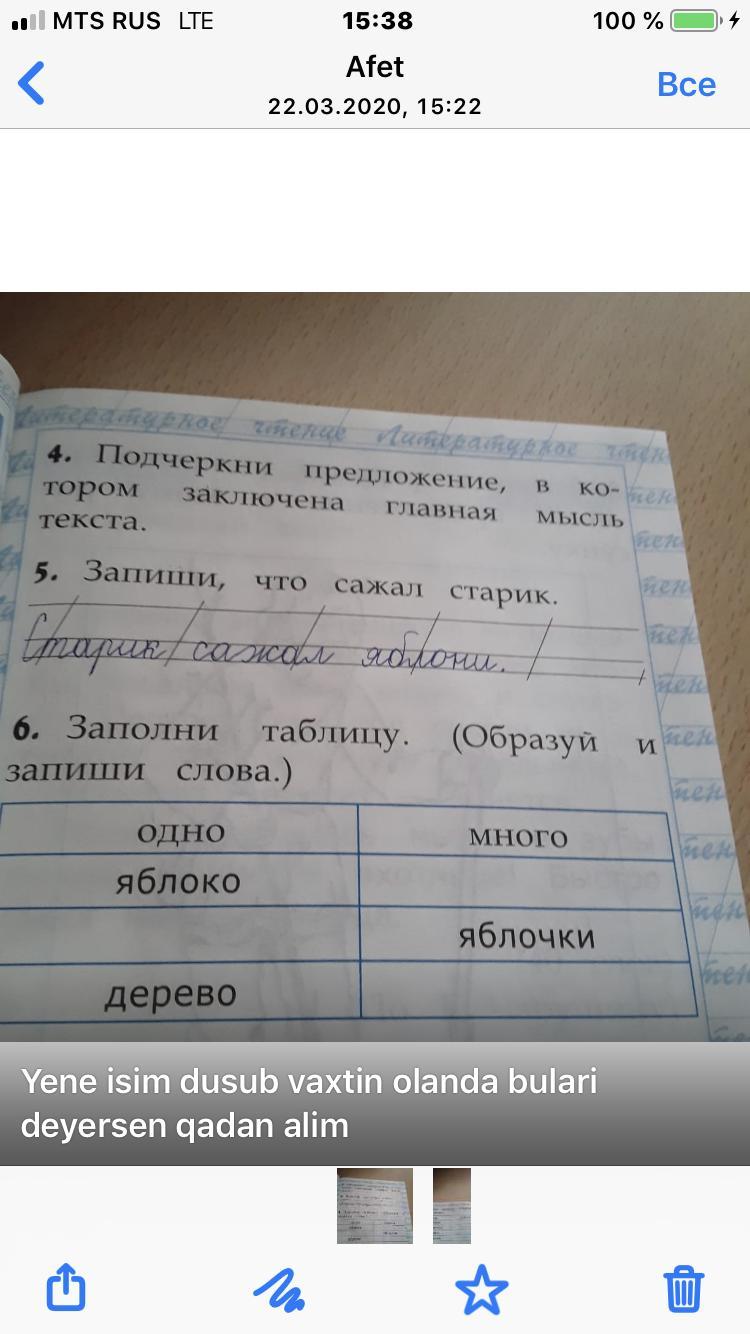 MTS RUS LTE 15:38 100 %
Afet
22.03.2020, 15:22
Все
Литературное чтение Литературное чтен
4. Подчеркни предложение, в ко-
тором заключена главная мысль
текста.
5. Запиши, что сажал старик.
Старик сажал яблони.
6. Заполни таблицу. (Образуй и
запиши слова.)
одно много
яблоко
яблочки
дерево
Yene isim dusub vaxtin olanda bulari
deyersen qadan alim